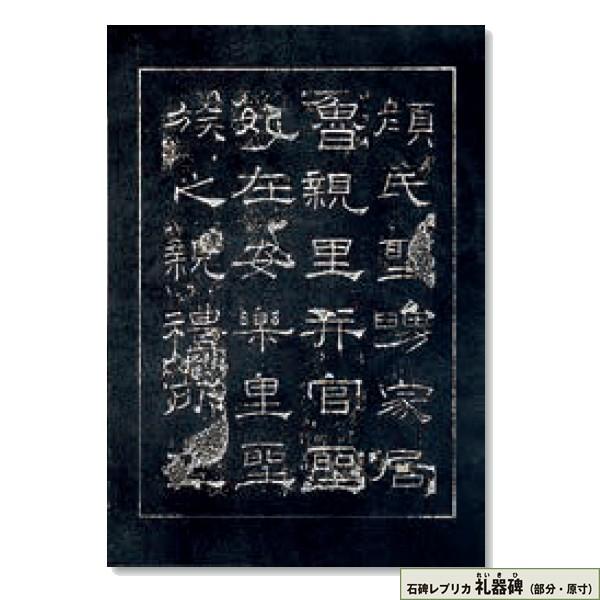 顏氏聖舅家居
魯親里并官聖
妃在安樂里聖
族之親禮所
れいきひ
石碑レプリカ 礼器碑（部分・原寸）